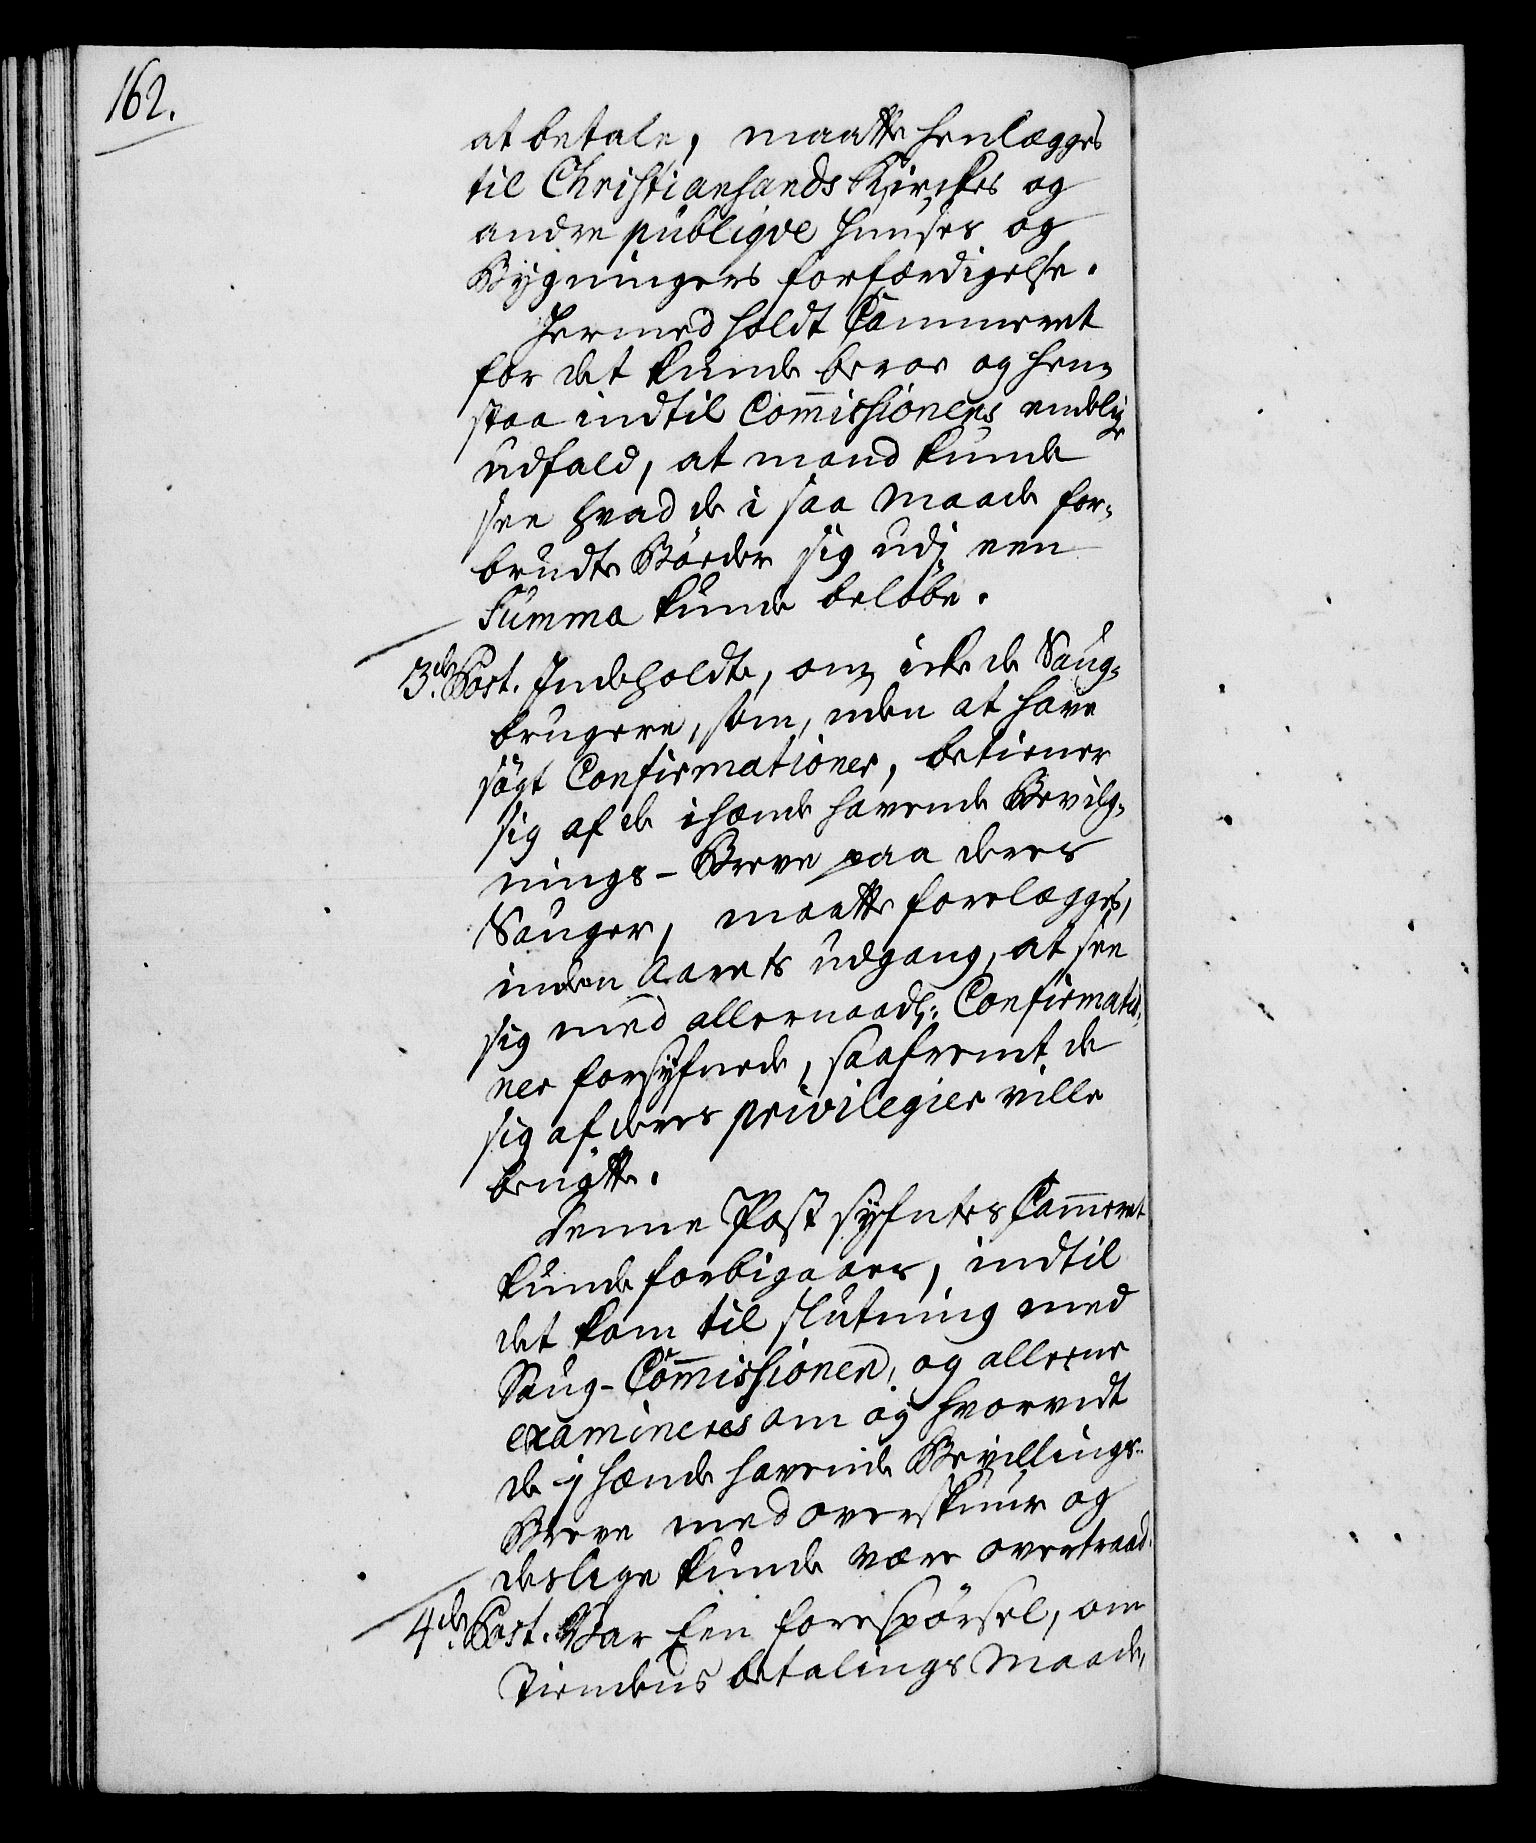 162.
at betale, maatte henlægges
til Christiansands Kirckes og
andre publiqve Huuses og
Bygningers forfærdigelse.
Hermed holdt Cammeret
for det kunde beroe og hen-
staa indtil Commissionens endelige
udfald, at mand kunde
see hvad de i saa maade for-
brudte Bøeder sig udj een
Summa kunde beløbe.
3de Post. Indeholdte, om icke de Saug-
brugere, som, uden at have
søgt Confirmationer, betiener
sig af de ihænde havende Bevilg-
nings-Breve paa deres
Sauger, maatte forelægges,
inden Aarets udgang, at see
sig med allernaadl: Confirmatio-
ner forsÿnede, saafremt de
sig af deres privilegier ville
benÿtte.
Denne Post sÿntes Cammeret
kunde forbigaaes, indtil
det kom til slutning med
Saug-Commissionen, og allerne
examineres om og hvorvidt
de i hænde havende Bevillings-
Breve med overskuur og
deslige kunde være overtraad.
4de Post. War Een forespørsel, om
Tiendens betalings Maade,